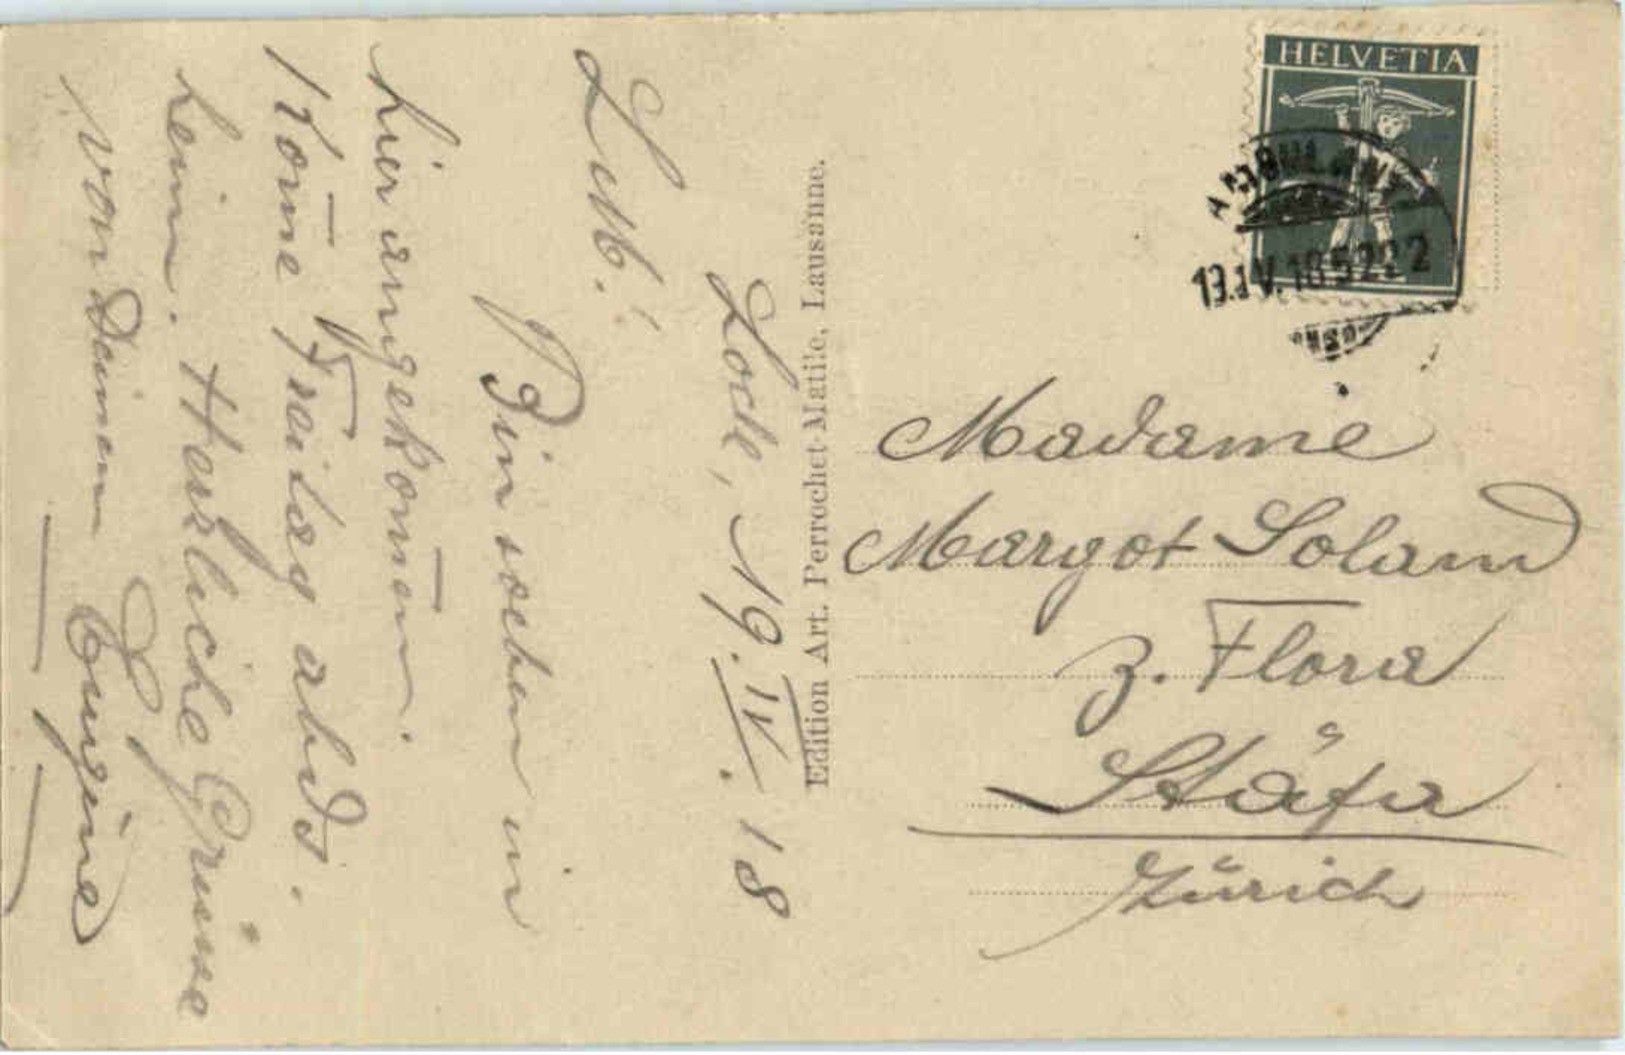 Locle, 19. IV. 18
Lieb!
Bin soeben in
hier angekom̄en.
Kom̄e Freitag abds.
heim. Herzliche Grüsse
von deinem Eugène
Edition Art. Perrochet-Matile, Lausanne.
HELVETIA
AMBULANT
19.IV.18
Madame
Margot Soland
z. Flora
Stäfa
Zürich